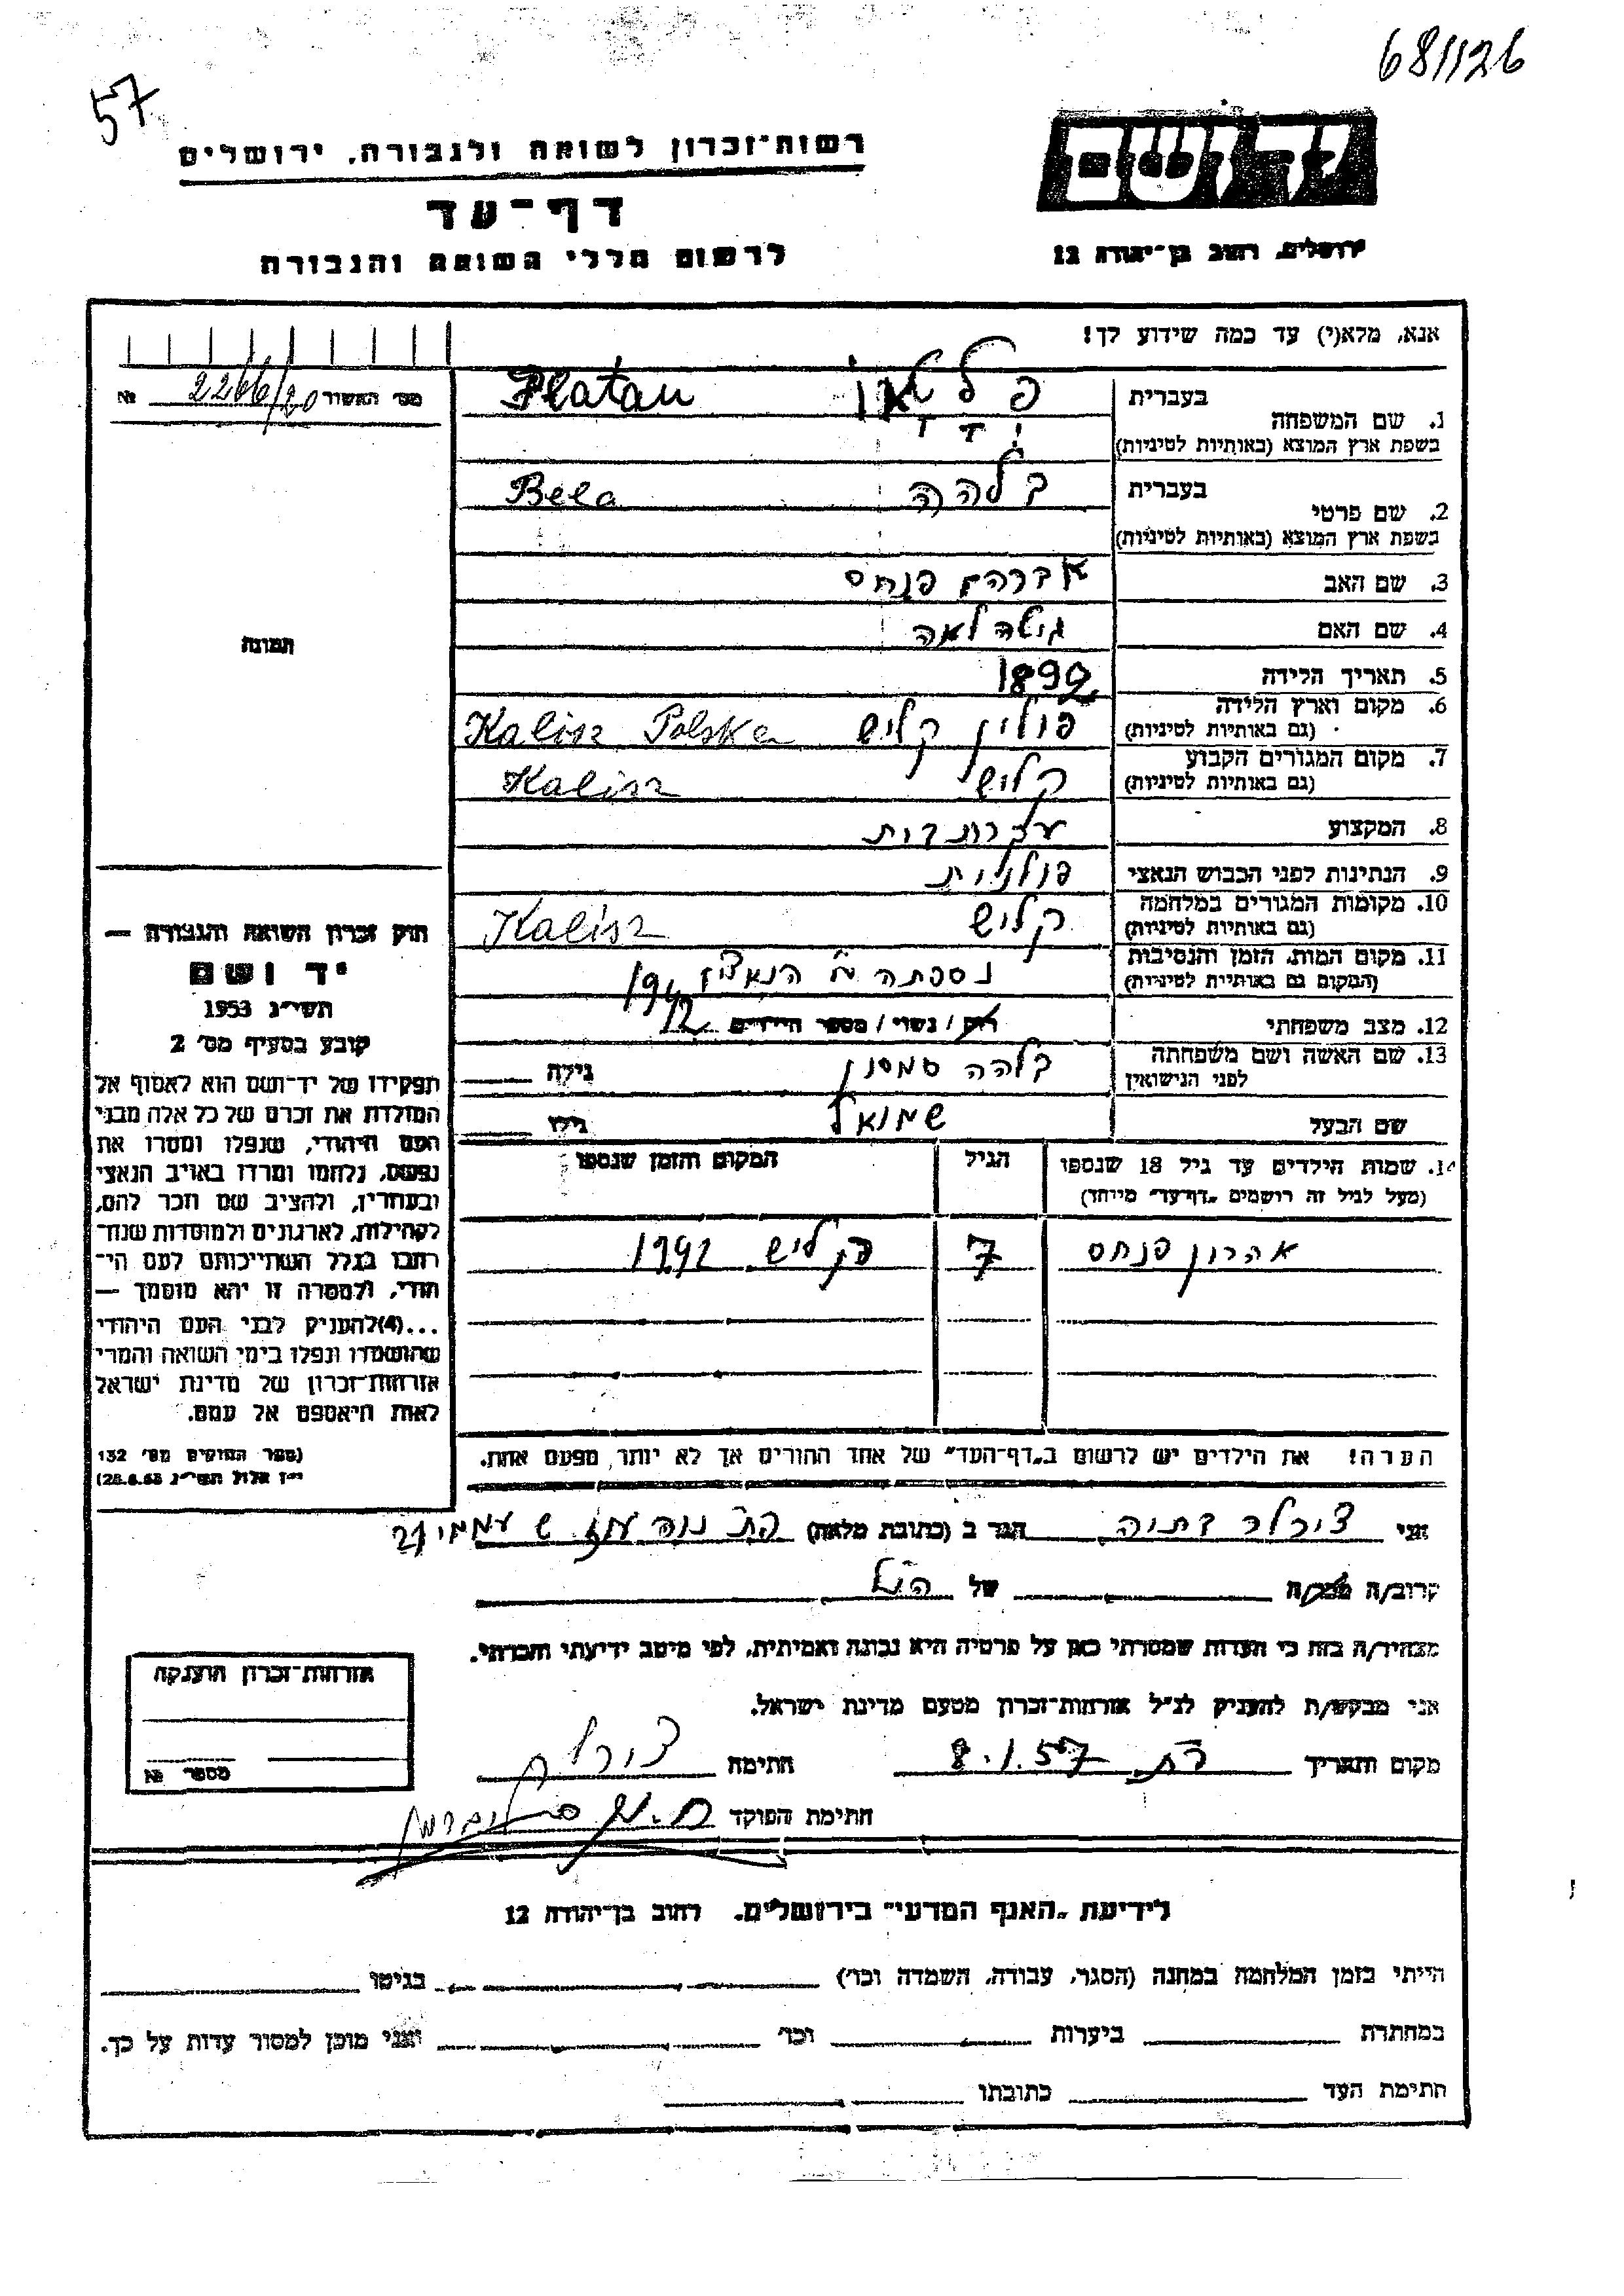 681126
57
רשות־זכרון לשואה ולגבורה, ירושלים
יד ושם
דף־עד
לרשום חללי השואה והגבורה
ירושלים, רחוב בן־יהודה 12
אנא, מלא(י) עד כמה שידוע לך!
מס׳ האשור 2266/20 №
תמונה
1. שם המשפחה
בעברית Platau
בשפת ארץ המוצא (באותיות לטיניות)
2. שם פרטי
בעברית בלהה Bela
בשפת ארץ המוצא (באותיות לטיניות)
3. שם האב אברהם פנחס
4. שם האם גיטה לאה
5. תאריך הלידה 1892
6. מקום וארץ הלידה פולין קליש Kalisz Polska
(גם באותיות לטיניות)
7. מקום המגורים הקבוע קליש Kalisz
(גם באותיות לטיניות)
8. המקצוע עקרת בית
9. הנתינות לפני הכבוש הנאצי פולנית
10. מקומות המגורים במלחמה קליש Kalisz
(גם באותיות לטיניות)
11. מקום המות, הזמן והנסיבות נספתה ע״י הנאצים 1942
(המקום גם באותיות לטיניות)
12. מצב משפחתי רווק / נשוי / מספר הילדים
13. שם האשה ושם משפחתה בלהה סמסון גילה
לפני הנישואין
שם הבעל שמואל גילו
14. שמות הילדים עד גיל 18 שנספו הגיל המקום והזמן שנספו
(מעל לגיל זה רושמים „דף־עד״ מיוחד)
אהרון פנחס 7 קליש 1942
הערה! את הילדים יש לרשום ב„דף־העד״ של אחד ההורים אך לא יותר מפעם אחת.
חוק זכרון השואה והגבורה —
יד ושם
תשי״ג 1953
קובע בסעיף מס׳ 2
תפקידו של יד־ושם הוא לאסוף אל
המולדת את זכרם של כל אלה מבני
העם היהודי, שנפלו ומסרו את
נפשם, נלחמו ומרדו באויב הנאצי
ובעוזריו, ולהציב שם וזכר להם,
לקהילות, לארגונים ולמוסדות שנח־
רבו בגלל השתייכותם לעם הי־
הודי, ולמטרה זו יהא מוסמך —
...(4) להעניק לבני העם היהודי
שהושמדו ונפלו בימי השואה והמרי
אזרחות־זכרון של מדינת ישראל
לאות היאספם אל עמם.
(ספר החוקים מס׳ 132
י״ז אלול תשי״ג 28.8.53)
אני הגר ב (כתובת מלאה)
קרוב/ה מכר/ה של הנ״ל
מצהיר/ה בזה כי העדות שמסרתי כאן על פרטיה היא נכונה ואמיתית, לפי מיטב ידיעתי והכרתי.
אני מבקש/ת להעניק לנ״ל אזרחות־זכרון מטעם מדינת ישראל.
מקום ותאריך 8.1.57 חתימה
חתימת הפוקד
אזרחות־זכרון הוענקה
מספר №
לידיעת „האגף המדעי״ בירושלים, רחוב בן־יהודה 12
הייתי בזמן המלחמה במחנה (הסגר, עבודה, השמדה וכו׳) בגיטו
במחתרת ביערות וכו׳ ואני מוכן למסור עדות על כך.
חתימת העד כתובתו